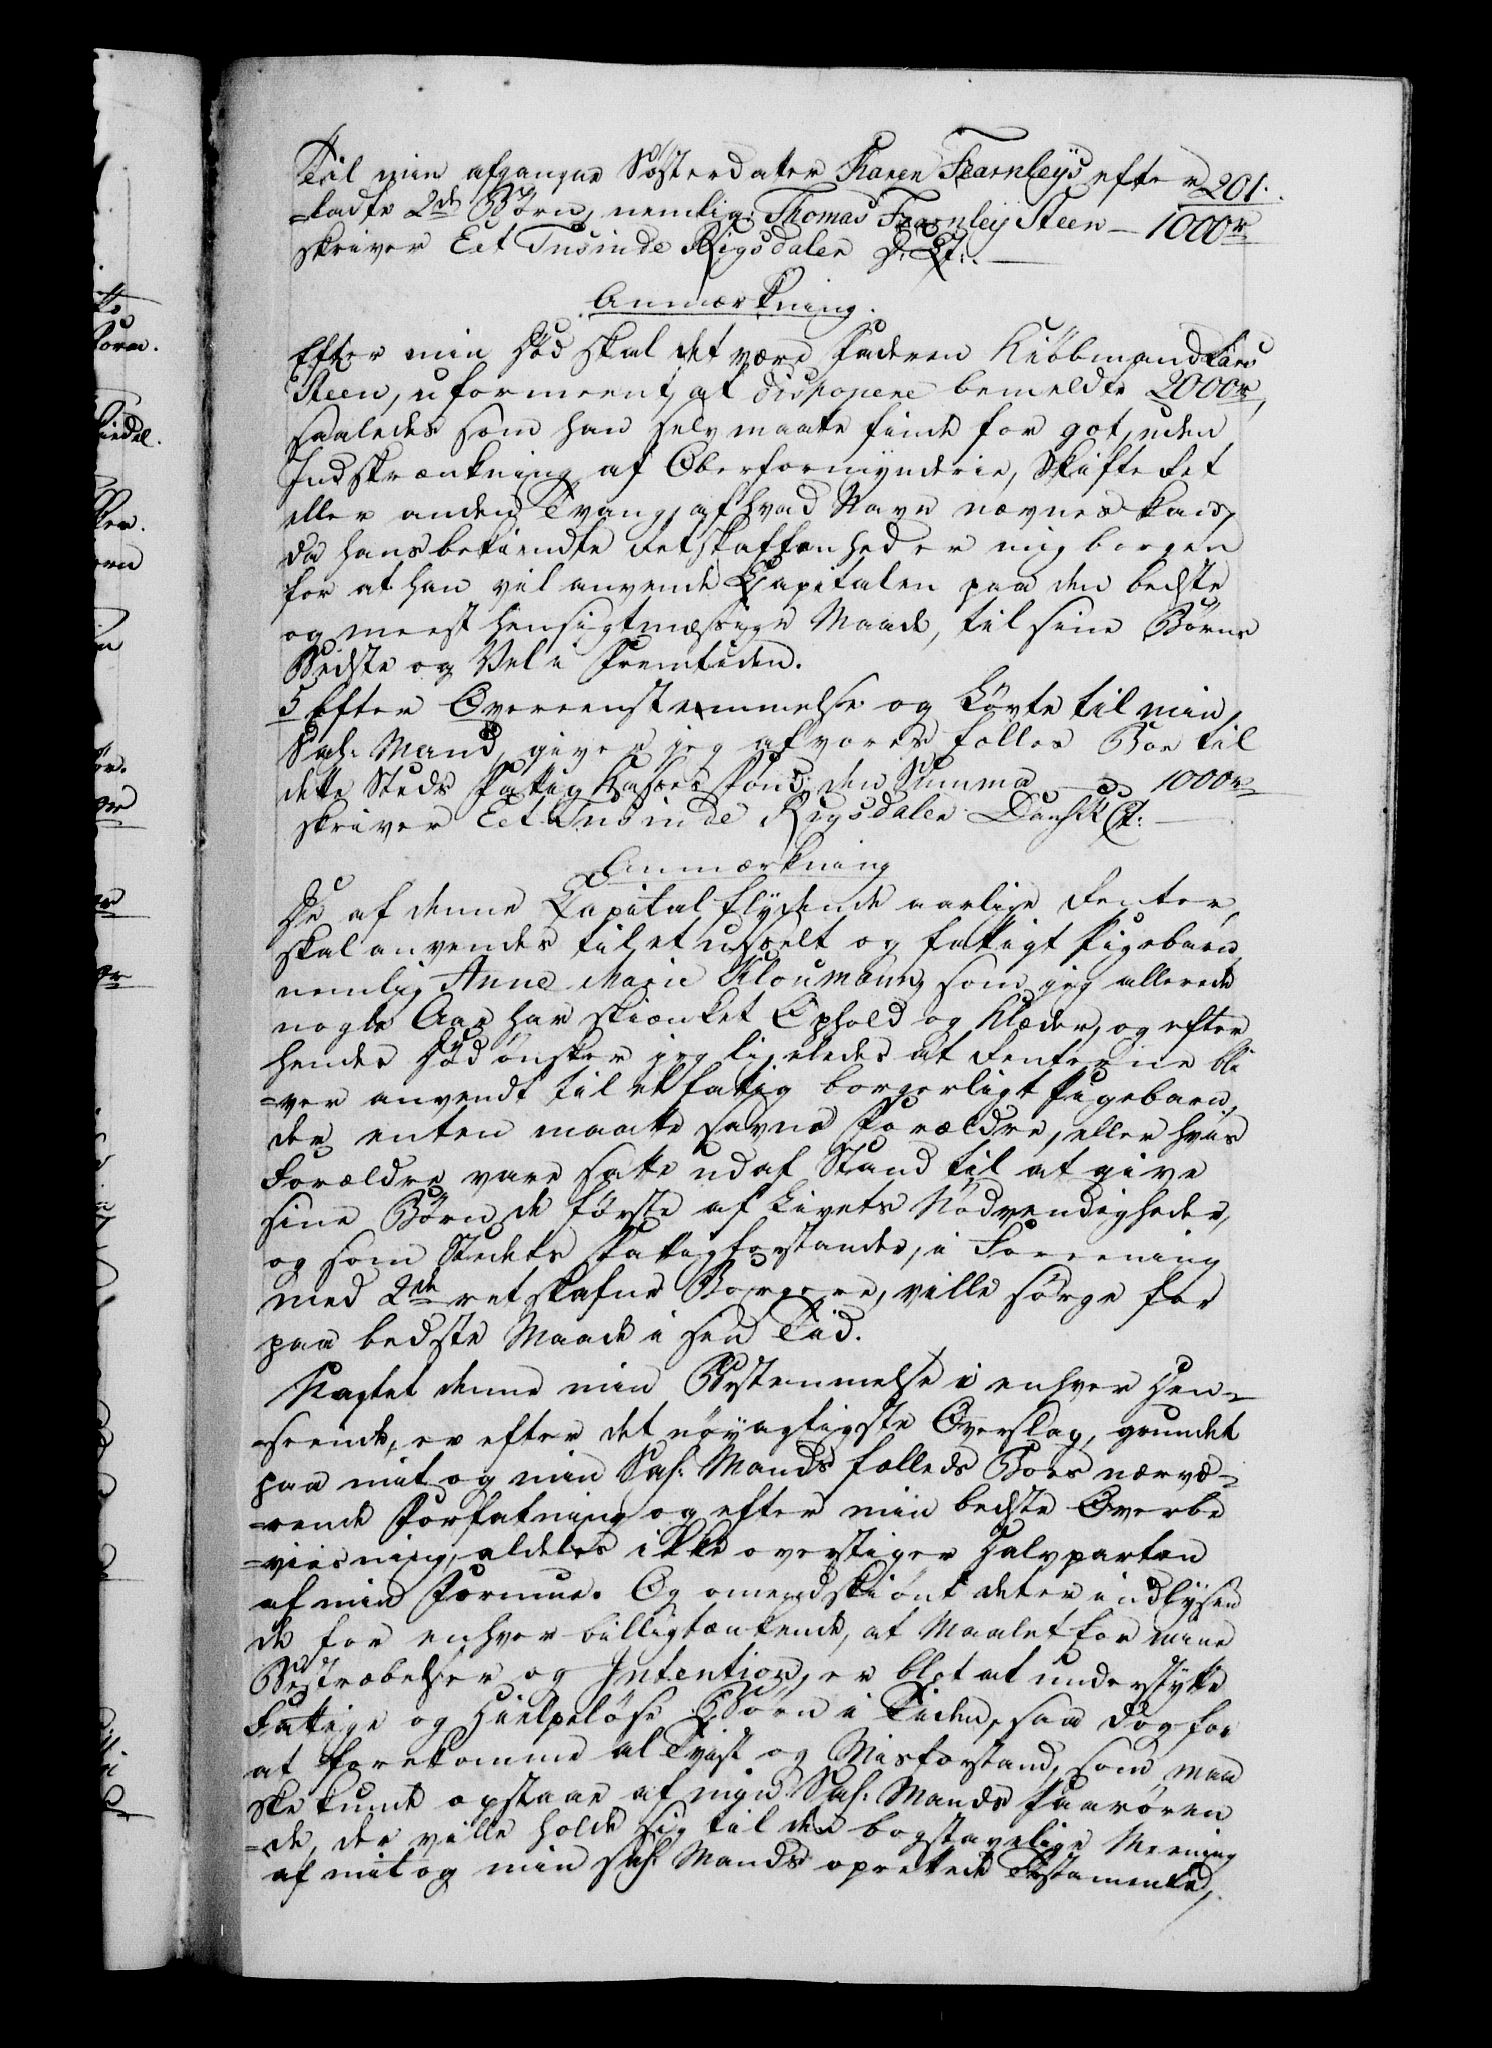 201.
Til min afgangne Søsterdater Karen Fearnleys efter
=ladte 2de Børn, nemlig: Thomas Fearnley Steen — 1000 rd
skriver Eet Tusinde Rigsdaler D: Ct:.
Anmærkning.
Efter min Død skal det være Faderen Kiøbmand Lars
Steen, uformeent, at disponere bemeldte 2000 rd,
saaledes som han selv maatte finde for got, uden
Indskrænkning af Oberformynderie, Skifte Ret
eller anden Tvang, af hvad Navn nævnes kan,
da hans bekiendte Retskaffenhed er mig borgen
for at han vil anvende Capitalen paa den bedste
og meest hensigtmæssige Maade, til sine Børns
Bedste og Vel i Fremtiden.
5 Efter Overeenstemmelse og Løvte til min
Sal: Mand, giver jeg af vores fælles Boe til
dette Steds Fattig Kasses Fond, den Summa — 1000 rd
skriver Eet Tusinde Rigsdaler Dansk Ct:
Anmærkning
De af denne Capital flydende aarlige Renter,
skal anvendes til et usselt og fattigt Pigebarn,
nemlig Anne Marie Kloumann, som jeg allerede
nogle Aar har skiænket Ophold og Klæder, og efter
hendes Død ønsker jeg ligeledes at Renterne bli
=ver anvendt til et fattig borgerligt Pigebarn,
der enten maatte savne Forældre, eller hvis
Forældre vare satte ud af Stand til at give
sine Børn de første af Livets Nødvendigheder,
og som Stedets Fattigforstander, i Foreening
med 2de retskafne Borgere, ville sørge for
paa bedste Maade i sin Tid.
Uagtet denne min Bestemmelse i enhver Hen=
=seende, er efter det nøyagtigste Overslag, grundet
paa mit og min Sal: Mands fælleds Boes nærvæ=
=rende Forfatning og efter min bedste Overbe
=viisning, aldeles ikke overstiger Halvparten
af min Formue. Og omendskiønt det er indlysen
de for enhver billigtænkende, at Maalet for mine
Bestræbelser og Intention, er blot at understytte
Fattige og Hielpeløse Børn i Tiden, saa dog for
at forekomme al Tvist og Misforstand, som maa
ske kunde opstaae af min Sal: Mands Paarøren
=de, der ville holde sig til den bogstavelige Meening
af mit og min Sal: Mands oprettede Testamente,